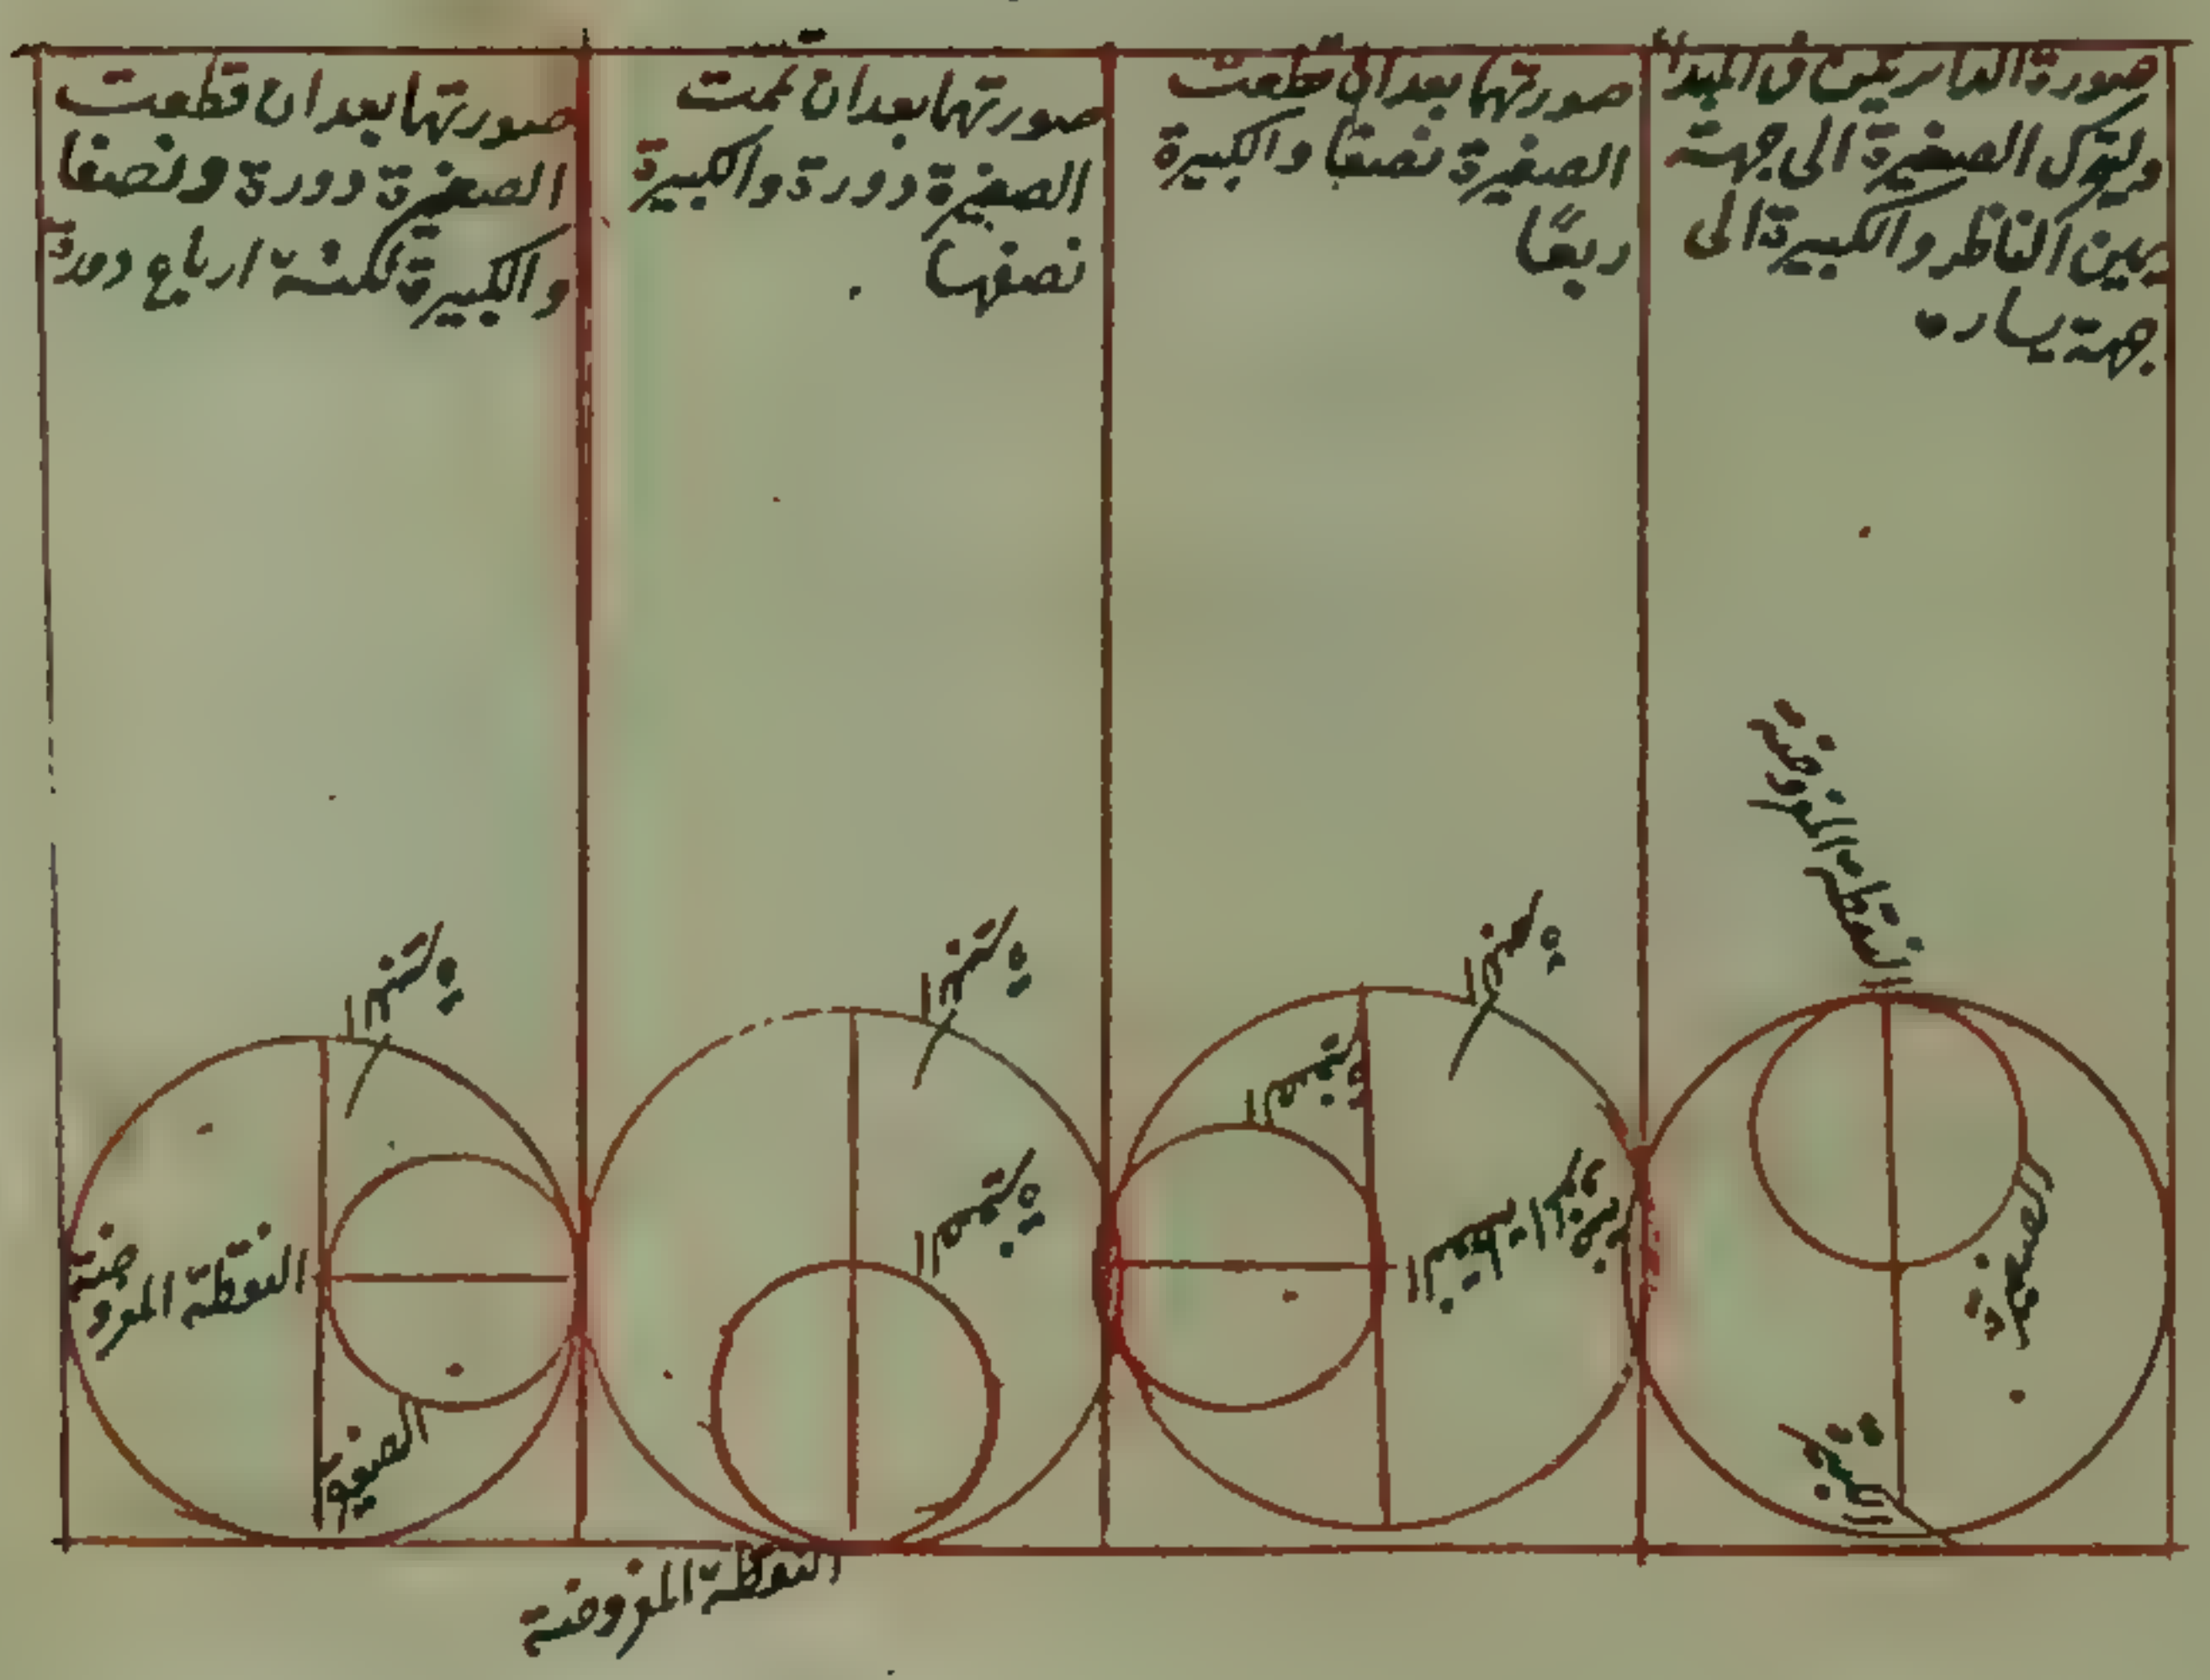 صورة الدائرتين في المبدأ
وليتحرك الصغيرة الى جهة
يمين الناظر والكبيرة الى
جهة يساره
صورتها بعد ان قطعت
الصغيرة نصفا والكبيرة
ربعًا
صورتها بعد ان تمت
الصغيرة دورة والكبيرة
نصفها
صورتها بعد ان قطعت
الصغيرة دورة ونصفا
والكبيرة ثلثة ارباع دورة
النقطة المفروضة
الصغيرة
الكبيرة
الكبيرة
الصغيرة
الكبيرة
الصغيرة
النقطة المفروضة
الكبيرة
النقطة المفروضة
الصغيرة